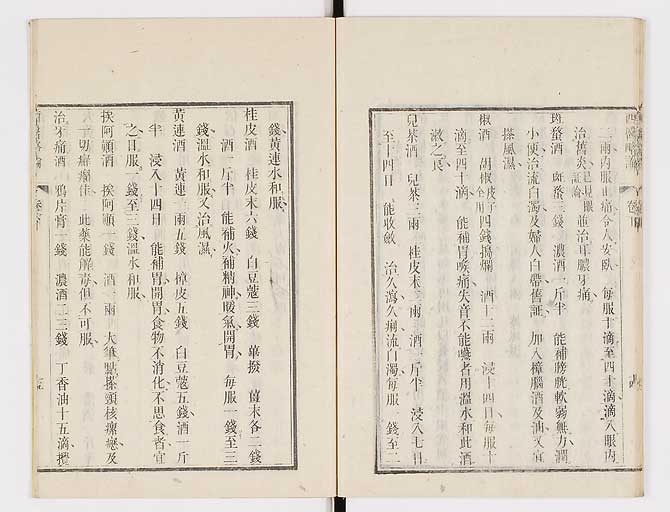 二兩內服止痛令人安臥 每服十滴至四十滴滴入眼內
治舊炎證是見眼並治耳膿牙痛
斑蝥酒 斑蝥三錢 濃酒一斤半 能補膀胱軟弱無力潤
小便治流白濁及婦人白帶舊証 加入樟腦酒及油又宜
搽風濕
椒酒 胡椒四錢搗爛 酒十二兩 浸十四日每服十
滴至四十滴 能補胃喉痛失音不能嚥者用溫水和此酒
漱之良
兒茶酒 兒茶三兩 桂皮末二兩 酒一斤半 浸入七日
至十四日 能收斂 治久瀉久痢流白濁每服一錢至二
錢黃連水和服
桂皮酒 桂皮末六錢 白豆蔻三錢 蓽撥 薑末各二錢
酒一斤半 能補火補精神暖氣開胃 每服一錢至三
錢溫水和服又治風濕
黃連酒 黃連二兩五錢 橙皮五錢 白豆蔻五錢酒一斤
半 浸入十四日 能補胃開胃食物不消化不思食者宜
之日服一錢至三錢溫水和服
挨阿顛酒 挨阿顛一錢 酒一兩 大筆點搽頸核瘰癧及
人一切癬癩佳 此藥能解毒但不可服
治牙痛酒 鴉片膏一錢 濃酒二三錢 丁香油十五滴攪